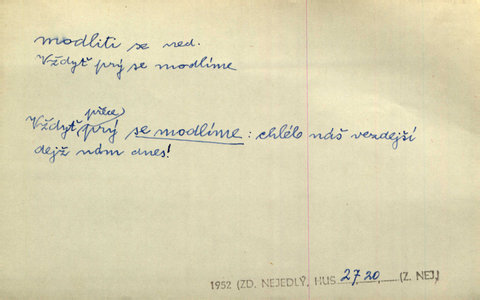 modliti se ned.
Vždyť prý se modlíme
přece
Vždyť prý se modlíme: chléb náš vezdejší
dejž nám dnes!
1952 (ZD. NEJEDLÝ, HUS 27 20 (Z. NEJ.)